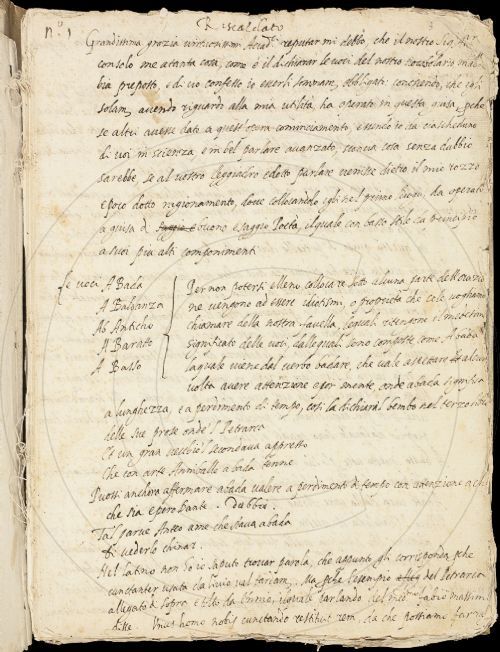 Riscaldato
nº. 1
Grandissima grazia virtuosissimi Acad. reputar mi debbo, che il nostro Sig.
con solo me a tanta cosa, como è il dichiarar le voci del nostro vocabolario
bia preposto, e di ciò confesso
solam. avendo riguardo alla mia utilità, ha operato in questa guisa, pche
se altri avesse dati a quest'opera cominciamento, essendo
di voi in scienza, e in bel parlare avanzato, sconcia cosa senza dubbio
sarebbe, se al vostro leggiadro e dotto parlare venisse dietro il mio rozzo
e poco dotto ragionamento, dove collocando egli nel primo luogo, ha operato
a guisa d. buono e saggio Poeta, il quale con basso stile da principio
a suoi più alti componimenti
Le voci A Bada
A Baldanza
Ab Antichio
A Baratto
A Basso
Per non potersi elleno collocare sotto alcuna parte dell'orazio
ne vengono ad essere idiotismi, o proprietà che
chiamare della nostra favella, i quali ritengono il medesimo
significato delle voci, dalle quali sono composte, come A bada
la quale viene dal verbo badare, che vale aspettare et alcuna
volta avere attenzione e por mente, onde abada significa
a lunghezza, e a perdimento di tempo, così la dichiara'l Bembo nel terzo
delle sue prose onde'l Petrarca
Et un gran vecchio'l secondava appresso
Che con arte Anniballe a bada tenne
Puossi anchora affermare abada valere a perdimento di tempo con attenzione a ciò
che si
Tal parve Anteo a me che stava a bada
Di vederlo chinar.
Nel latino non so io saputo trovar parola, che appunto gli corrisponda, pche
cunctanter usata da
allegato di sopra è tolto da Ennio, il quale parlando del med.mo Fabio massimo
disse. Unus homo nobis cunctando restituit rem,